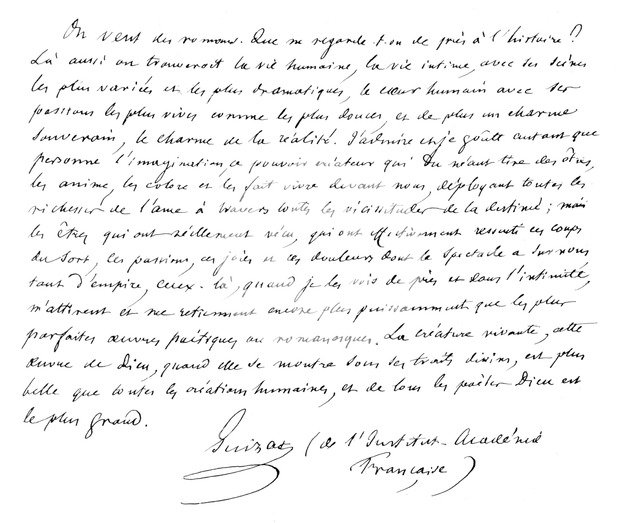 On veut des romans. Que ne regarde t-on de près à l'histoire?
Là aussi on trouveroit la vie humaine, la vie intime, avec ses scènes
les plus variées et les plus dramatiques, le cœur humain avec ses
passions les plus vives comme les plus douces, et de plus un charme
souverain, le charme de la réalité. J'admire et je goûte autant que
personne l'imagination, ce pouvoir créateur qui du néant tire des êtres,
les anime, les colore et les fait vivre devant nous, déployant toutes les
richesses de l'ame à travers toutes les vicissitudes de la destinée; mais
les êtres qui ont réellement vécu, qui ont effectivement ressenti ces coups
du sort, ces passions, ces joies et ces douleurs dont le spectacle a sur nous
tant d'empire, ceux-là, quand je les vois de près et dans l'intimité,
m'attirent et me retiennent encore plus puissamment que les plus
parfaites œuvres poétiques ou romanesques. La créature vivante, cette
œuvre de Dieu, quand elle se montre sous ses traits divins, est plus
belle que toutes les créations humaines, et de tous les poëtes Dieu est
le plus grand.
Guizot (de l'Institut-Académie
Française)